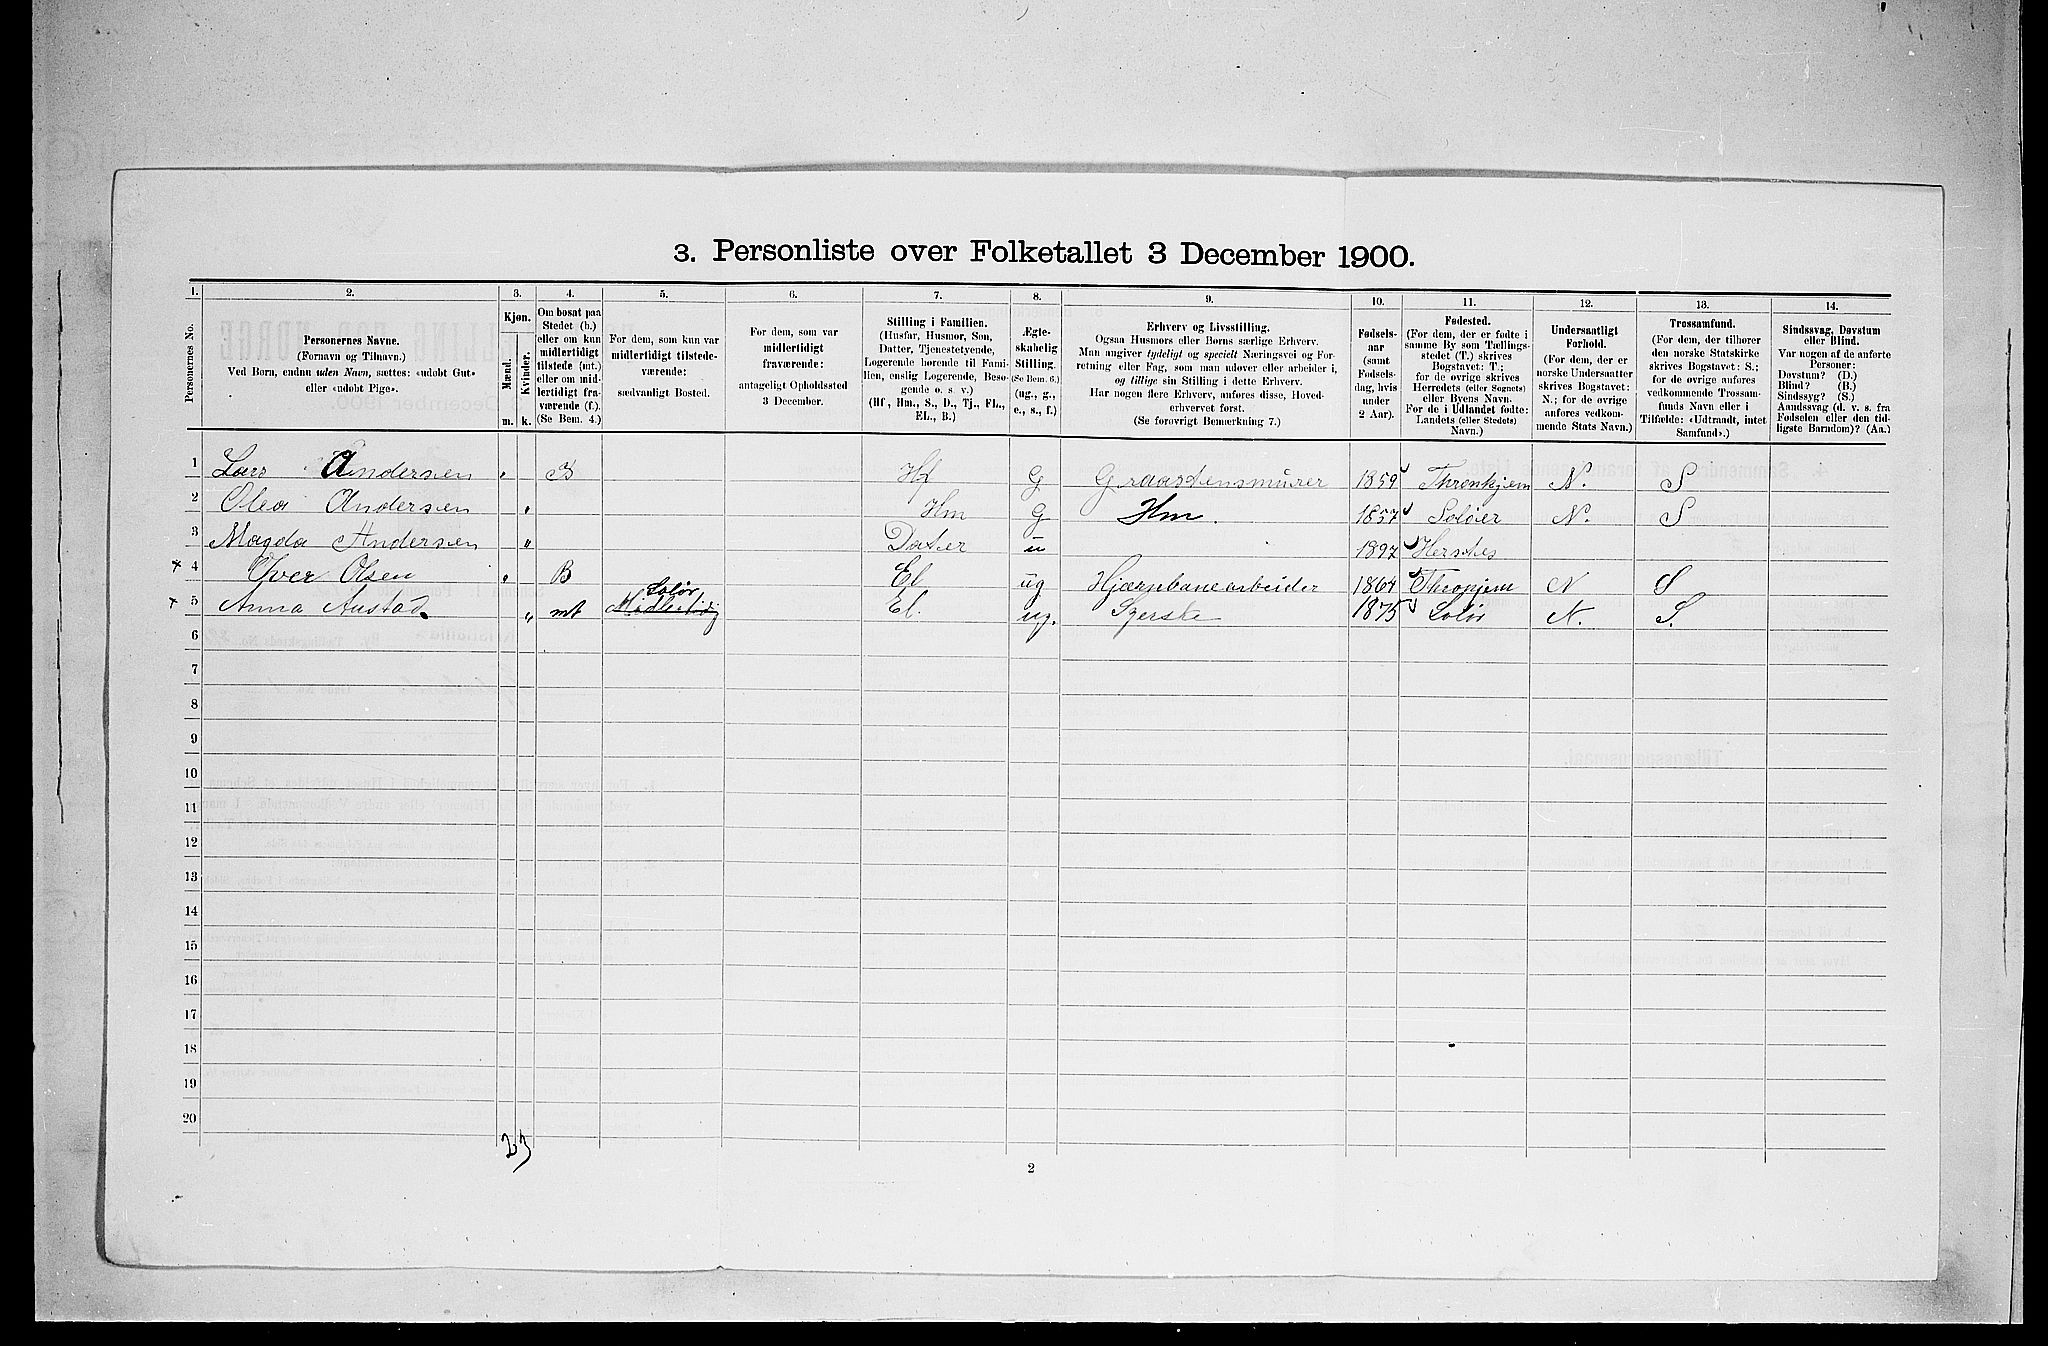 3. Personliste over Folketallet 3 December 1900.
1. 2. 3. 4. 5. 6. 7. 8. 9. 10. 11. 12. 13. 14.
Personernes No.
Personernes Navne.
(Fornavn og Tilnavn.)
Ved Børn, endnu uden Navn, sættes: «udøbt Gut»
eller «udøbt Pige».
Kjøn.
Mænd.
Kvinder.
m. k.
Om bosat paa
Stedet (b.)
eller om kun
midlertidigt
tilstede (mt.)
eller om mid-
lertidigt fra-
værende (f.).
(Se Bem. 4.)
For dem, som kun var
midlertidigt tilstede-
værende:
sædvanligt Bosted.
For dem, som var
midlertidigt
fraværende:
antageligt Opholdssted
3 December.
Stilling i Familien.
(Husfar, Husmor, Søn,
Datter, Tjenestetyende,
Logerende hørende til Fami-
lien, enslig Logerende, Besø-
gende o. s. v.)
(Hf., Hm., S., D., Tj., FL.,
EL., B.)
Ægte-
skabelig
Stilling.
(Se Bem. 6.)
(ug., g.,
e., s., f.)
Erhverv og Livsstilling.
Ogsaa Husmors eller Børns særlige Erhverv.
Man angiver tydeligt og specielt Næringsvei og For-
retning eller Fag, som man udøver eller arbeider i,
og tillige sin Stilling i dette Erhverv.
Har nogen flere Erhverv, anføres disse, Hoved-
erhvervet først.
(Se forøvrigt Bemærkning 7.)
Fødsels-
aar
(samt
Fødsels-
dag, hvis
under
2 Aar).
Fødested.
(For dem, der er fødte i
samme By som Tællings-
stedet (T.) skrives
Bogstavet: T.;
for de øvrige skrives
Herredets (eller Sognets)
eller Byens Navn.
For de i Udlandet fødte:
Landets (eller Stedets)
Navn.)
Undersaatligt
Forhold.
(For dem, der er
norske Undersaatter
skrives Bogstavet:
N.; for de øvrige
anføres vedkom-
mende Stats Navn.)
Trossamfund.
(For dem, der tilhører
den norske Statskirke
skrives Bogstavet: S.;
for de øvrige anføres
vedkommende Trossam-
funds Navn eller i
Tilfælde: «Udtraadt, intet
Samfund».)
Sindssvag, Døvstum
eller Blind.
Var nogen af de anførte
Personer:
Døvstum? (D.)
Blind? (B.)
Sindssyg? (S.)
Aandssvag (d. v. s. fra
Fødselen eller den tid-
ligste Barndom)? (Aa.)
1 Lars Andersen B Hf G Graastensmurer 1859 Thronhjem N. S
2 Olea Andersen Hm G Hm. 1857 Soløer N. S
3 Magda Andersen Dater u 1897
4 Iver Olsen B El ug Hjærnbanearbeider 1864 N S
5 Anna Austad mt Solør Midlertidig El. ug. 1875 Solør N. S.
6
7
8
9
10
11
12
13
14
15
16
17
18
19
20
2 3
2